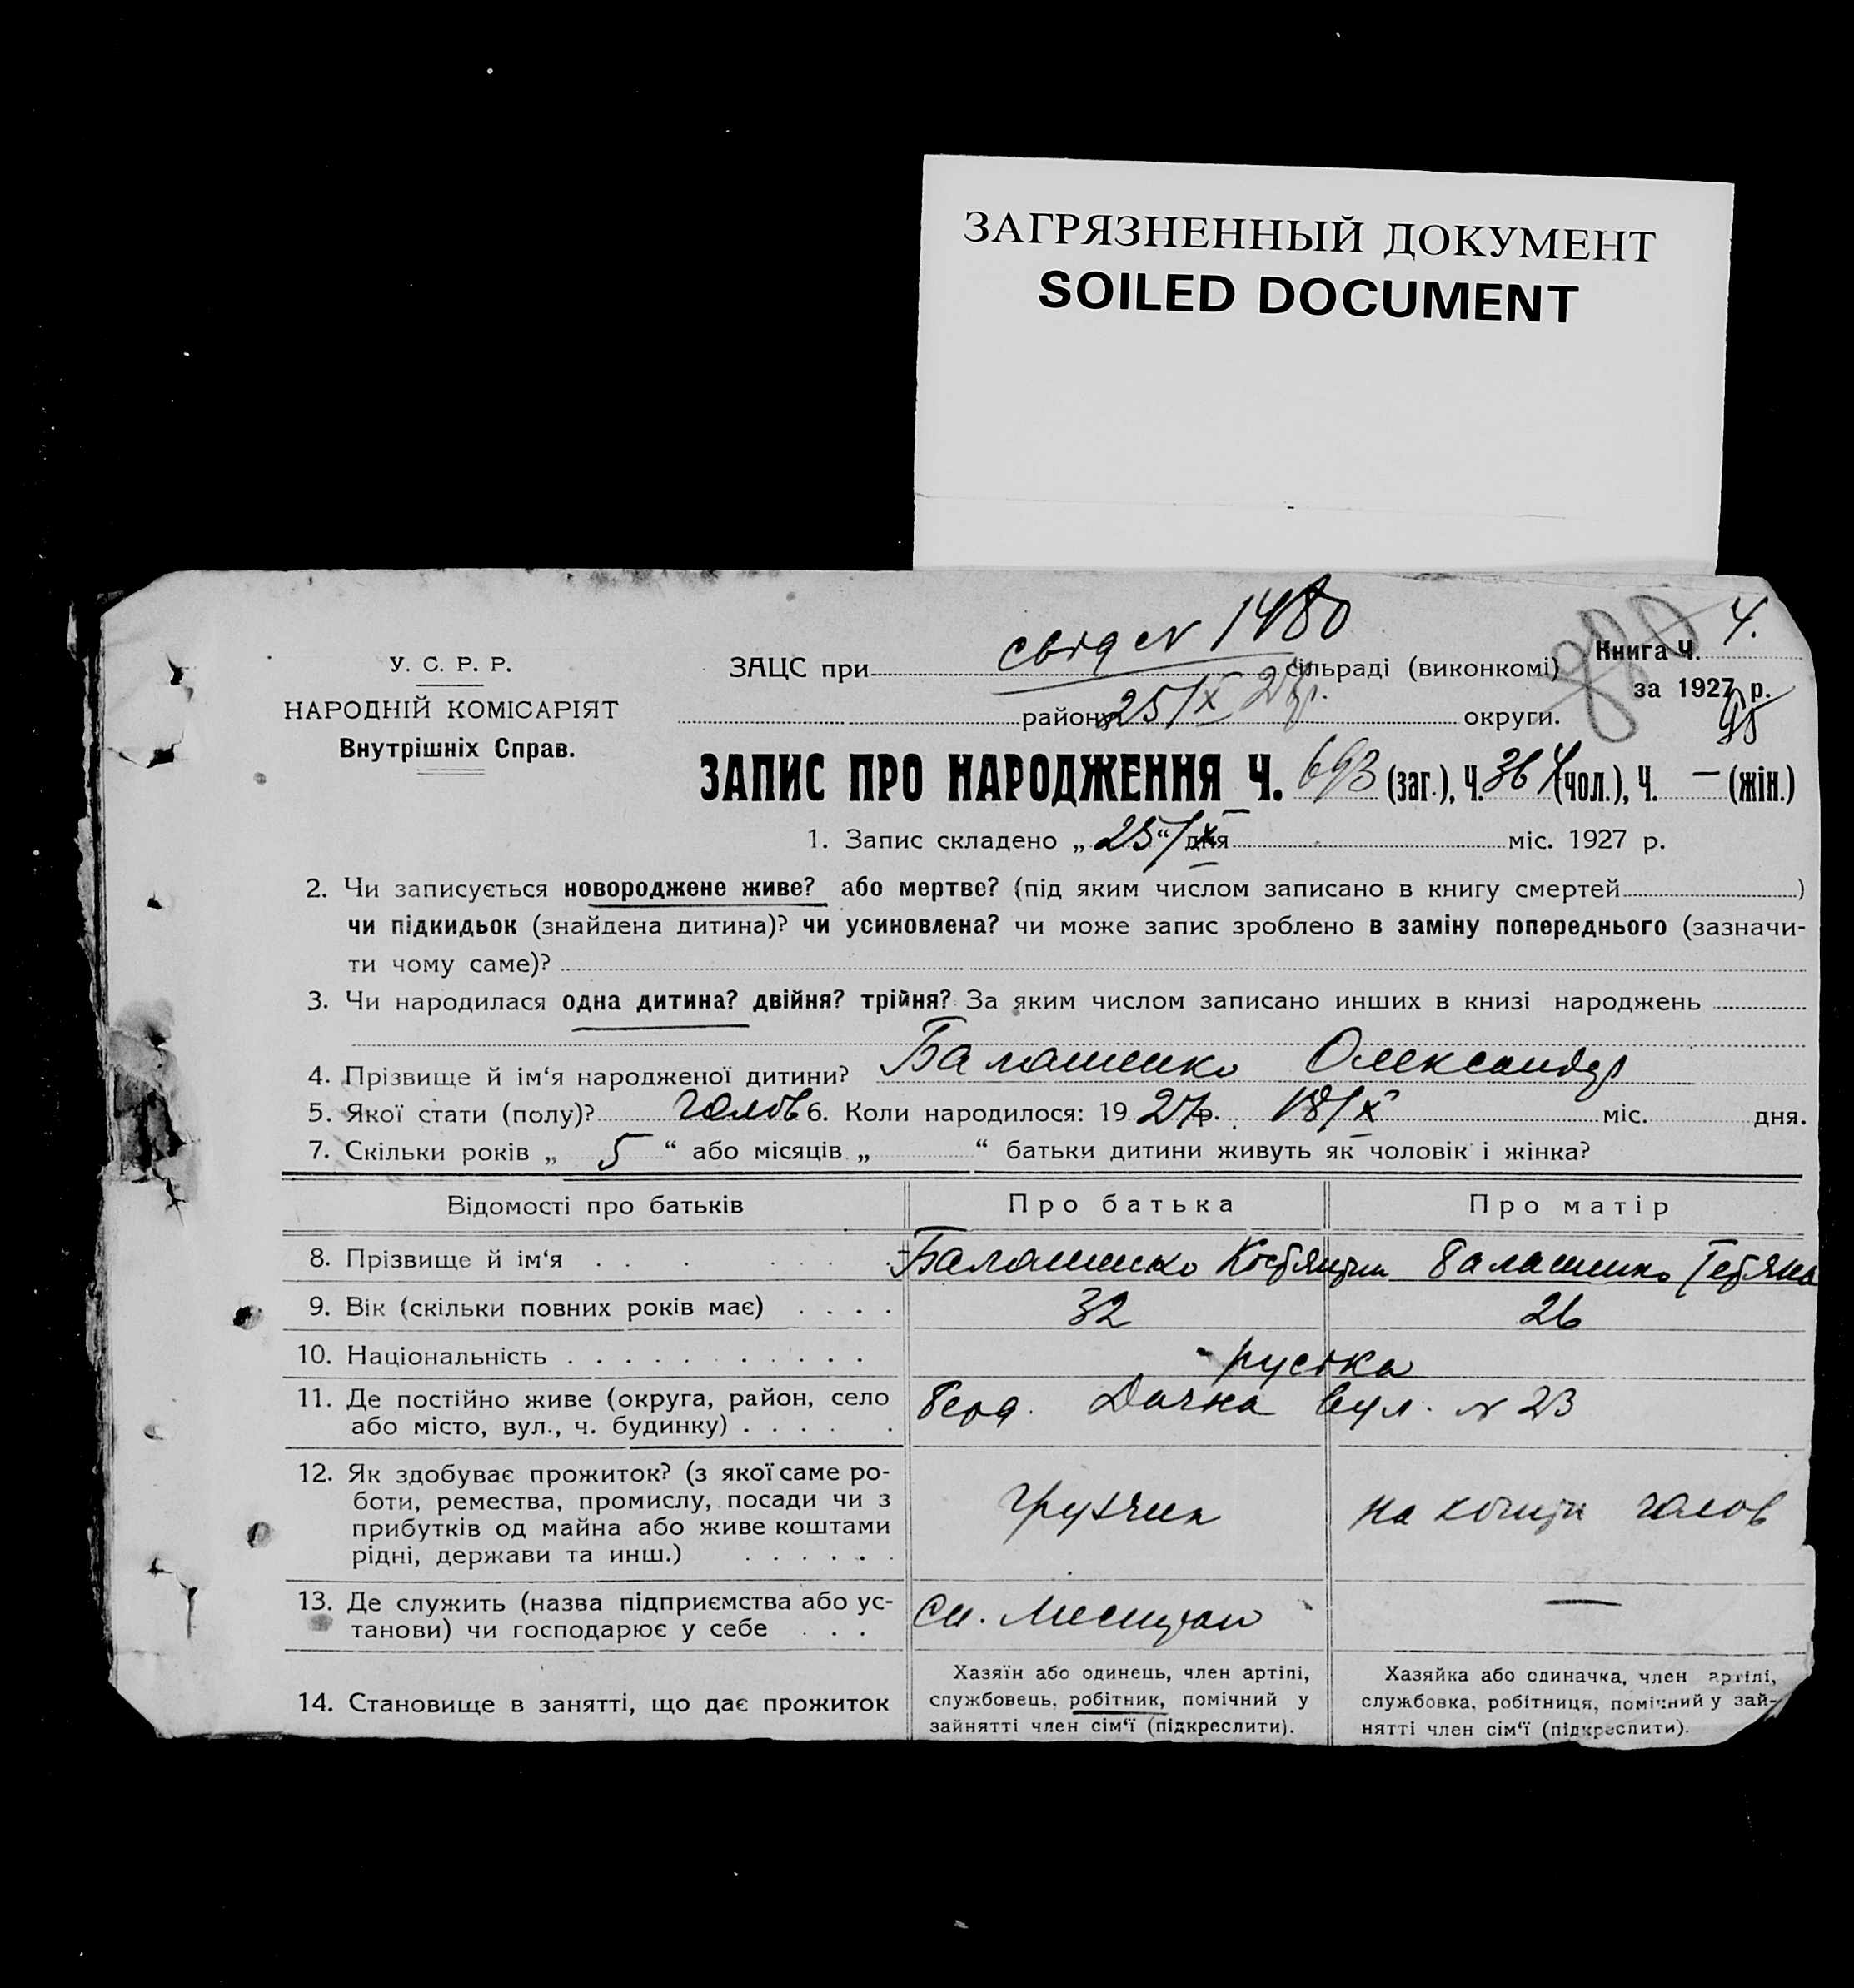 ЗАГРЯЗНЕННЫЙ ДОКУМЕНТ
SOILED DOCUMENT
У. С. Р. Р.
НАРОДНІЙ КОМІСАРІЯТ
Внутрішніх Справ.
ЗАЦС при свід № 1480 сільраді (виконкомі)
району 25/IX 27р. округи.
Книга Ч. 4.
за 1927 р.
ЗАПИС ПРО НАРОДЖЕННЯ Ч. 693 (заг.), Ч. 364 (чол.), Ч. — (жін.)
1. Запис складено „ 25/IX “ дня міс. 1927 р.
2. Чи записується новороджене живе? або мертве? (під яким числом записано в книгу смертей )
чи підкидьок (знайдена дитина)? чи усиновлена? чи може запис зроблено в заміну попереднього (зазначи-
ти чому саме)?
3. Чи народилася одна дитина? двійня? трійня? За яким числом записано инших в книзі народжень
4. Прізвище й ім‘я народженої дитини? Балашенко Олександр
5. Якої стати (полу)? чолов 6. Коли народилося: 19 27 р. 18/IX міс. дня.
7. Скільки років „ 5 “ або місяців „ “ батьки дитини живуть як чоловік і жінка?
Відомості про батьків Про батька Про матір
8. Прізвище й ім‘я Балашенко Костянтин Балашенко Тетяна
9. Вік (скільки повних років має) 32 26
10. Національність руська
11. Де постійно живе (округа, район, село
або місто, вул., ч. будинку)
Берд. Дачна вул. № 23
12. Як здобуває прожиток? (з якої саме ро-
боти, ремества, промислу, посади чи з
прибутків од майна або живе коштами
рідні, держави та инш.)
грузчик на кошти чолов
13. Де служить (назва підприємства або ус-
танови) чи господарює у себе
—
14. Становище в занятті, що дає прожиток
Хазяїн або одинець, член артілі,
службовець, робітник, помічний у
зайнятті член сім‘ї (підкреслити).
Хазяйка або одиначка, член артілі,
службовка, робітниця, помічний у зай-
нятті член сім‘ї (підкреслити).